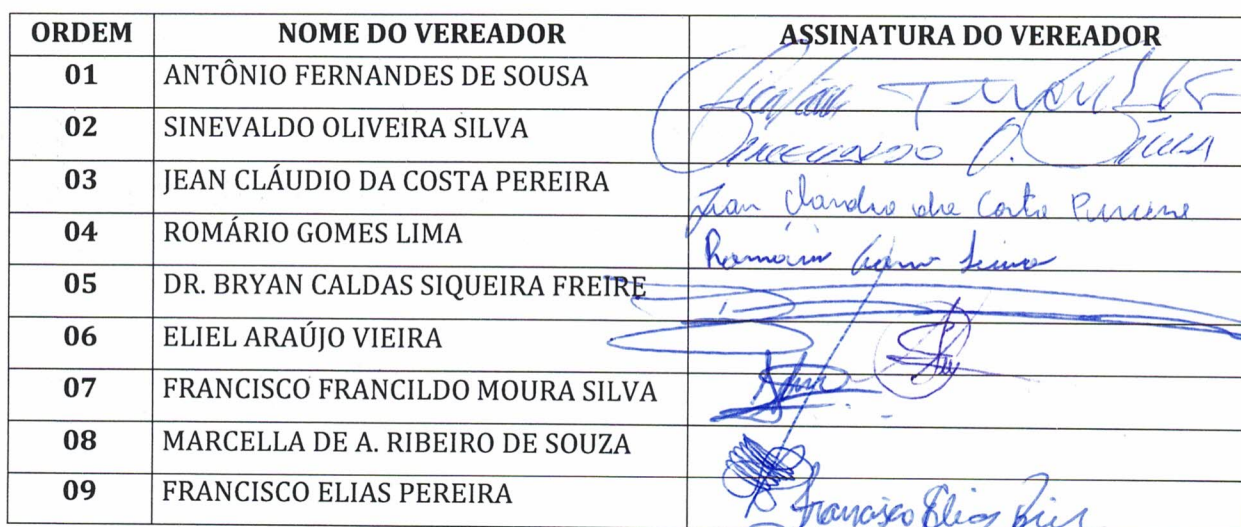 ORDEM NOME DO VEREADOR ASSINATURA DO VEREADOR
01 ANTÔNIO FERNANDES DE SOUSA
02 SINEVALDO OLIVEIRA SILVA O. Silva
03 JEAN CLÁUDIO DA COSTA PEREIRA Jean Claudio da Costa Pereira
04 ROMÁRIO GOMES LIMA Romário Gomes Lima
05 DR. BRYAN CALDAS SIQUEIRA FREIRE
06 ELIEL ARAÚJO VIEIRA
07 FRANCISCO FRANCILDO MOURA SILVA
08 MARCELLA DE A. RIBEIRO DE SOUZA
09 FRANCISCO ELIAS PEREIRA Francisco Elias